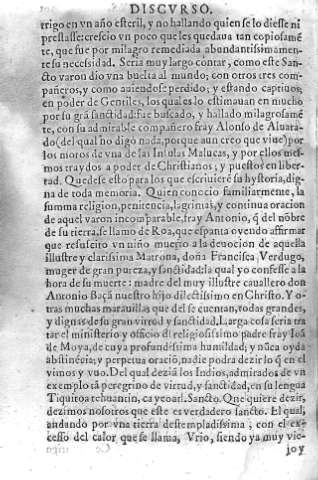 DISCVRSO.
trigo en vn año esteril, y no hallando quien se lo diesse ni
prestasse: crescio vn poco que les quedaua tan copiosamẽ
te, que fue por milagro remediada abundantissimamen-
te su necessidad. Seria muy largo contar, como este San-
cto varon dio vna buelta al mundo; con otros tres com-
pañeros, y como auiendose perdido; y estando captiuos,
en poder de Gentiles, los quales lo estimauan en mucho
por su grã sanctidad: fue buscado, y hallado milagrosamẽ
te, con su admirable compañero fray Alonso de Aluara-
do (del qual no digo nada, porque aun creo que viue) por
los moros de vna de las Insulas Malucas, y por ellos mes-
mos traydos a poder de Christianos; y puestos en liber-
tad. Quedese esto para los que escriuierẽ su hystoria, dig-
na de toda memoria. Quien conocio familiarmente, la
summa religion, penitencia, lagrimas, y continua oracion
de aquel varon incomparable, fray Antonio, q̃ del nõbre
de su tierra, se llamo de Roa, que espanta oyendo affirmar
que resuscito vn niño muerto a la deuocion de aquella
illustre y clarissima Matrona, doña Francisca Verdugo,
muger de gran pureza, y sanctidad: la qual yo confesse a la
hora de su muerte: madre del muy illustre cauallero don
Antonio Baçã nuestro hijo dilectissimo en Christo. Y o-
tras muchas marauillas que del se cuentan, todas grandes,
y dignas de su gran virtud y sanctidad. Larga cosa seria tra
tar el ministerio y officio del religiosissimo padre fray Ioã
de Moya, de cuya profundissima humildad; y nũca oyda
abstinẽcia; y perpetua oraciõ, nadie podra dezir lo q̃ en el
vimos y vuo. Del qual dezian los Indios, admirados de vn
exemplo tã peregrino de virtud, y sanctidad, en su lengua
dezimos nosotros que este es verdadero sancto. El qual,
andando por vna tierra destempladissima, con el ex-
cesso del calor que se llama, Vrio, siendo ya muy vie-
jo y